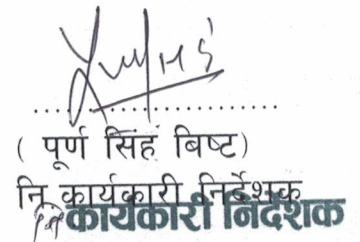 ( पूर्ण सिंह बिष्ट)
नि कार्यकारी निर्देशक
कार्यकारी निर्देशक